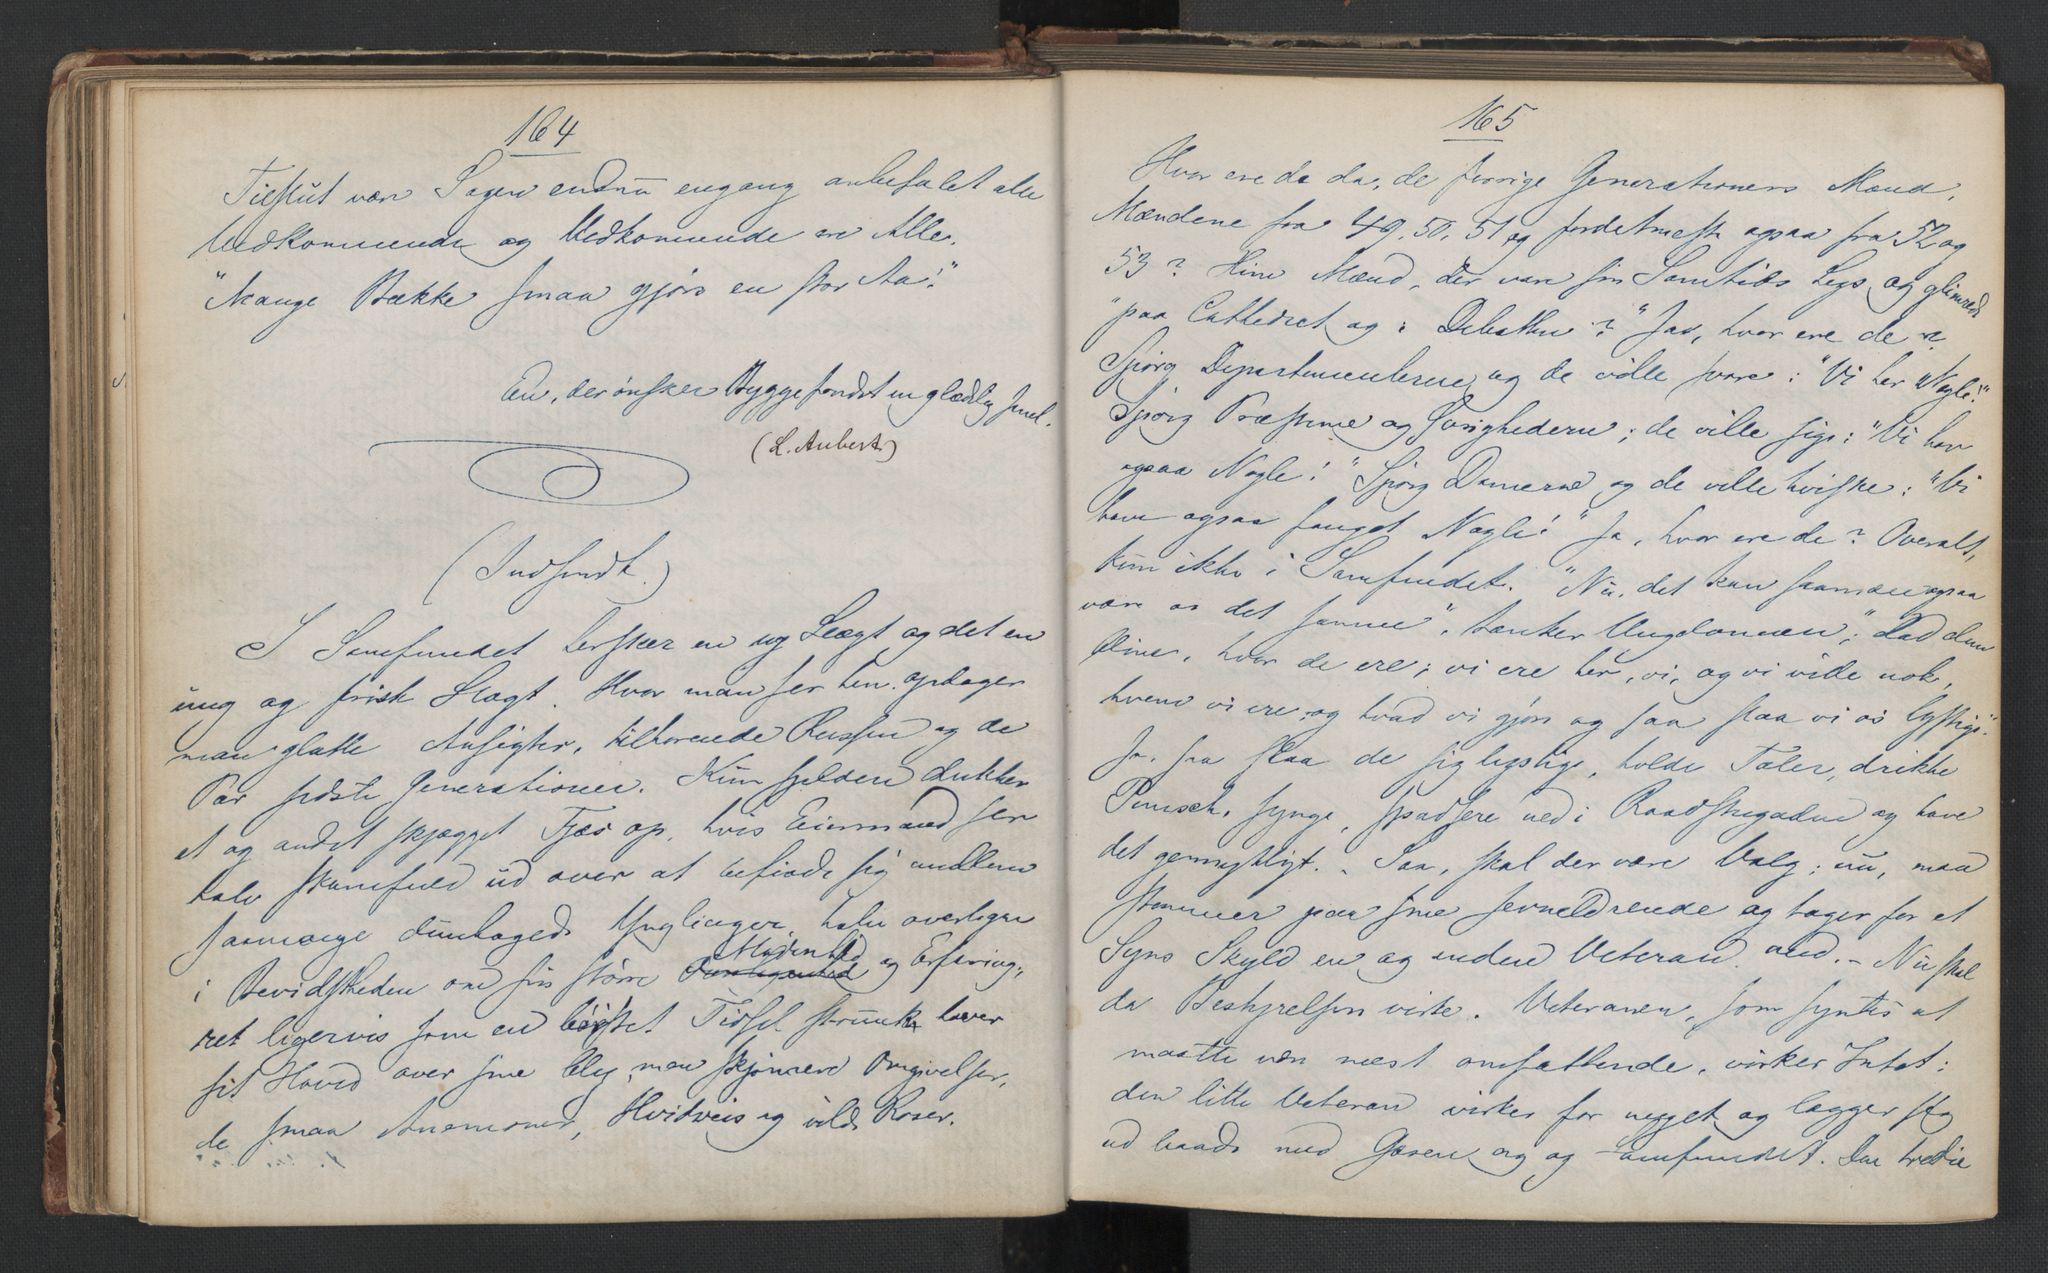 164
Tilslut være Sagen endnu engang anbefalet alle
Vedkommende og Vedkommende ere Alle.
"Mange Bække smaa gjøre en stor Aa!"
En, der ønsker Byggefondet en glædelig Juul.
(L. Aubert)
(Indsendt.)
I Samfundet hersker en ny Slægt og det en
ung og frisk Slægt. Hvor man ser hen, opdager
man glatte Ansigter, tilhørende Russen og de
Par sidste Generationer. Kun sjelden dukker
et og andet skjægget Fjæs op, hvis Eiermand ser
halv skamfuld ud over at befinde sig mellem
saamange duunhagede Ynglinger, halv overlegen
i Bevidstheden om sin større Modenhed og Erfaring,
ret ligervis som en Tidsel strunk hæver
sit Hoved over sine blyge, men skjønnere Omgivelser,
de smaa Anemoner, Hvidveis og vilde Roser.
165
Hvor ere de da, de forrige Generationers Mænd,
Mændene fra 49, 50, 51 og fordetmeste ogsaa fra 52 og
53? Hine Mænd, der vare sin Samtids Lys og glimrede
"paa Cathedret og i Debatten?" Ja, hvor ere de?
Spørg Departementerne og de ville svare: "Vi har Nogle!"
Spørg Præsterne og Sorighederne; de ville sige: "Vi have
ogsaa Nogle!" Spørg Damerne og de ville hviske: "Vi
have ogsaa fanget Nogle!" Ja, hvor ere de? Overalt,
kun ikke i Samfundet. "Nu, det kan saamæn ogsaa
være os det samme", tænker Ungdommen; "Lad dem
blive, hvor de ere; vi ere her, vi, og vi vide nok,
hvem vi ere, og hvad vi gjøre og saa slaa vi os lystige".
Ja, saa slaa de sig lystige, holde Taler, drikke
Punsch, synge, spadsere ned i Raadstugaden og have
det gemytligt. – Saa, skal der være Valg; nu, man
stemmer paa sine Jevnaldrende og tager for et
Syns Skyld en og anden Veteran med. – Nu skal
da Bestyrelsen virke. Veteranen, som syntes at
maatte være mest omfattende, virker Intet;
den lille Veteran virker for meget og lægger sig
ud baade med Gæsten og og Samfundet. Den tredie